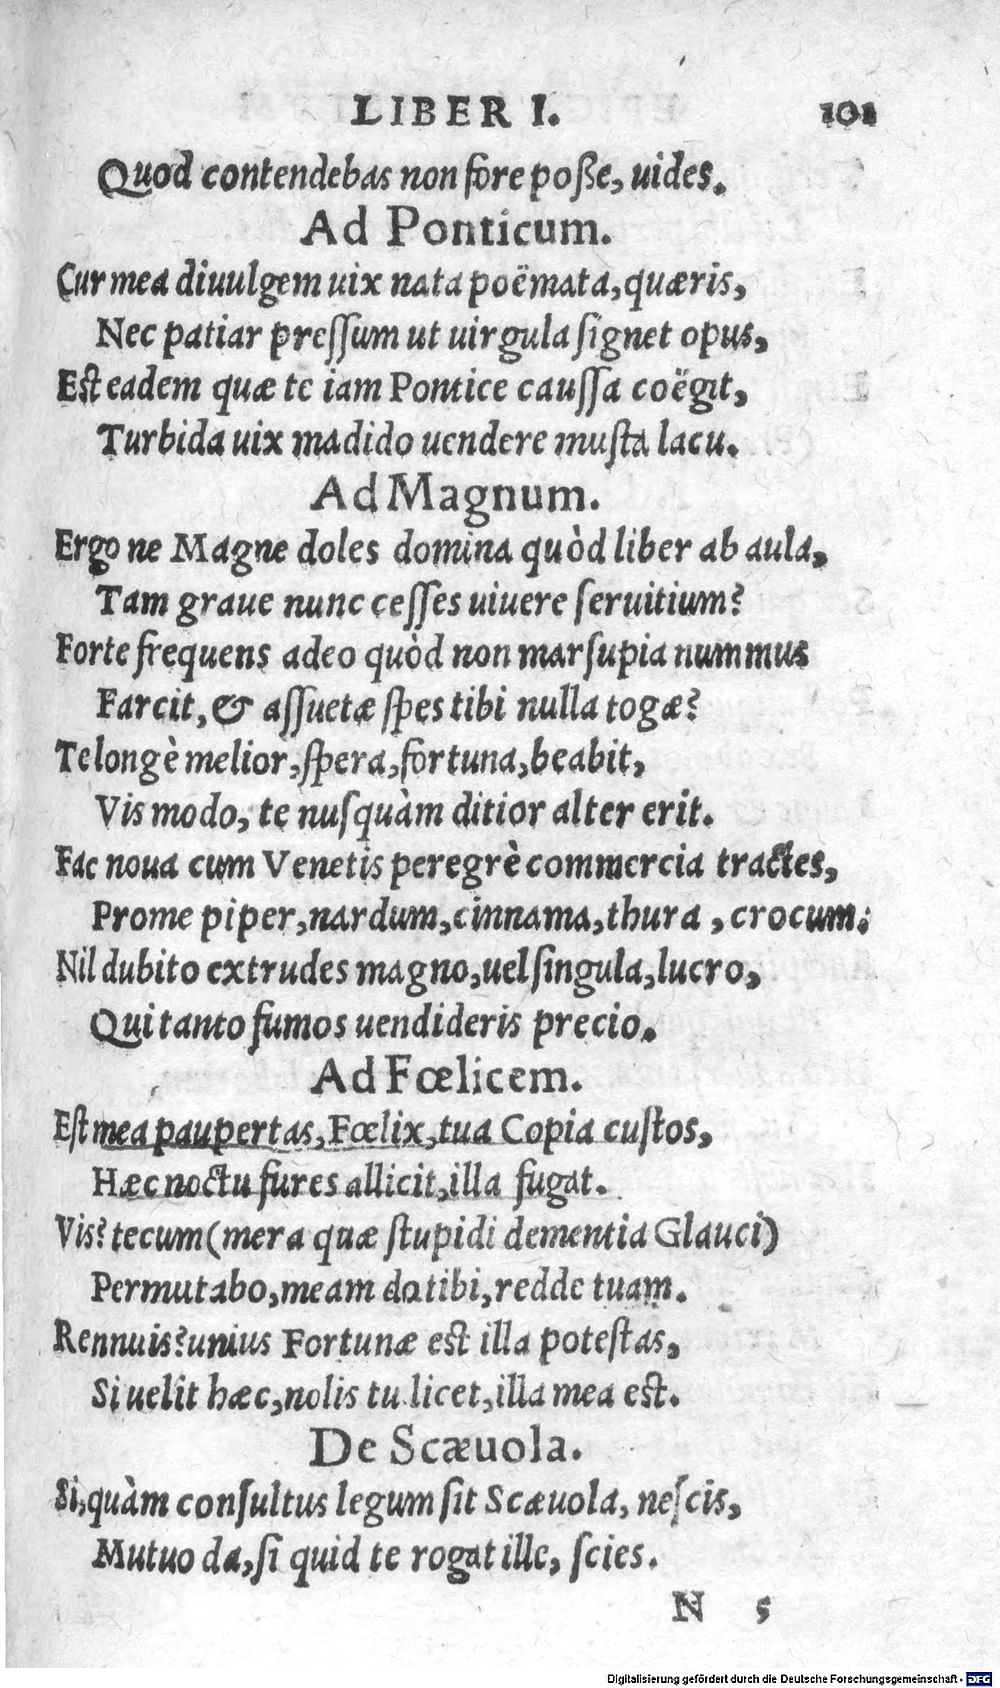 LIBER I. 101
Quod contendebas non fore poße, uides.
Ad Ponticum.
Cur mea diuulgem uix nata poëmata, quæris,
Nec patiar pressum ut uirgula signet opus,
Est eadem quæ te iam Pontice caussa coëgit,
Turbida uix madido uendere musta lacu.
Ad Magnum.
Ergo ne Magne doles domina quòd liber ab aula,
Tam graue nunc cesses uiuere seruitium?
Forte frequens adeo quòd non marsupia nummus
Farcit, & assuetæ spes tibi nulla togæ?
Te longè melior, spera, fortuna, beabit,
Vis modo, te nusquàm ditior alter erit.
Fac noua cum Venetis peregrè commercia tractes,
Prome piper, nardum, cinnama, thura, crocum:
Nil dubito extrudes magno, uel singula, lucro,
Qui tanto fumos uendideris precio.
Ad Fœlicem.
Est mea paupertas, Fœlix, tua Copia custos,
Hæc noctu fures allicit, illa fugat.
Vis? tecum (mera quæ stupidi dementia Glauci)
Permutabo, meam do tibi, redde tuam.
Rennuis? unius Fortunæ est illa potestas,
Si uelit hæc, nolis tu licet, illa mea est.
De Scæuola.
Si, quàm consultus legum sit Scæuola, nescis,
Mutuo da, si quid te rogat ille, scies.
N 5
Digitalisierung gefördert durch die Deutsche Forschungsgemeinschaft - DFG